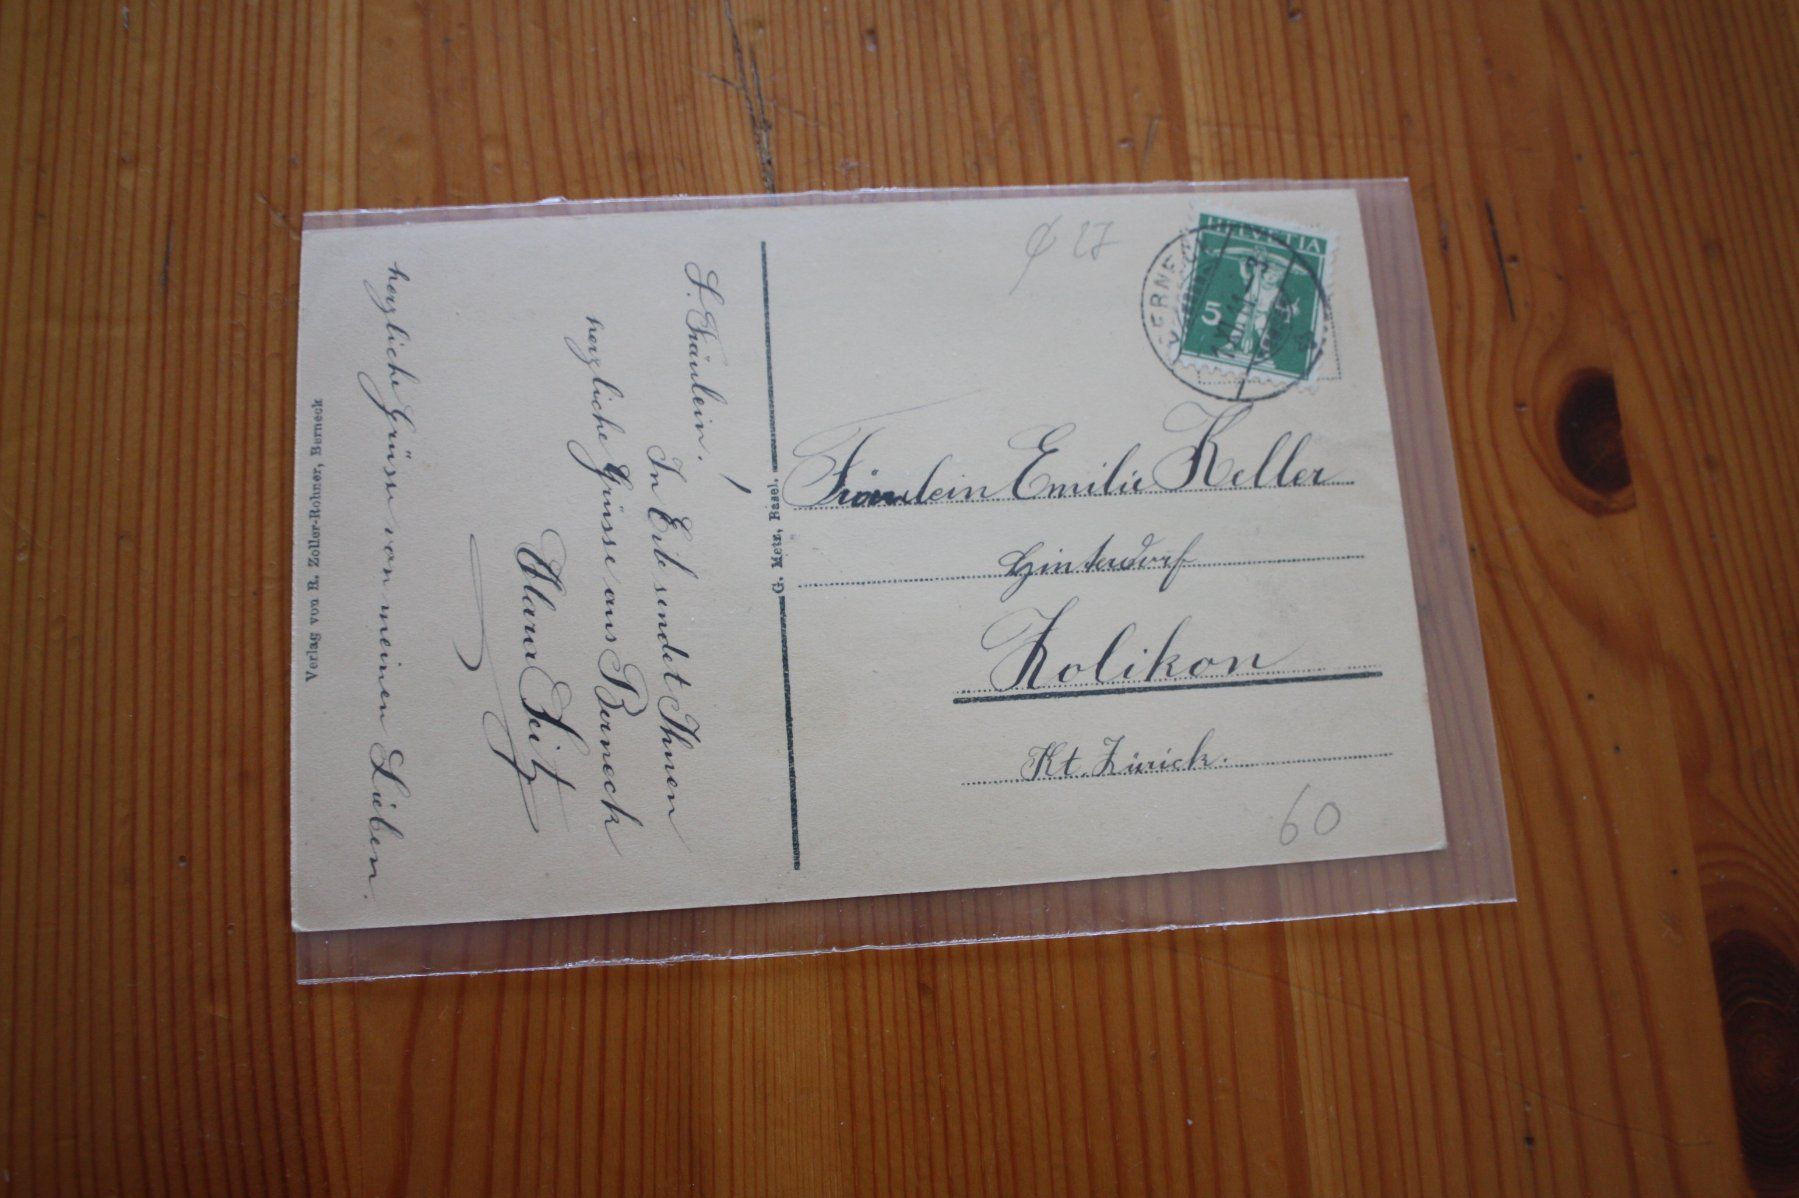 L. Fräulein.
In Eile sendet Ihnen
herzliche Grüsse aus Berneck
Klara Seitz
herzliche Grüsse von meinen Lieben.
Verlag von R. Zoller-Rohner, Berneck
G. Metz, Basel.
27
HELVETIA
5
BERNECK
Fräulein Emilie Keller
Hinterdorf
Zolikon
Kt. Zürich.
60